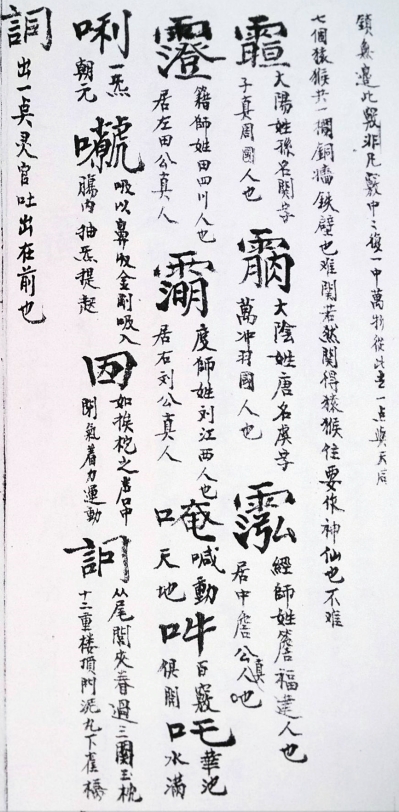 鎖無邊此竅非凡竅中之復一中萬物從此出一点與天同
七個猿猴共一欄銅墻铁壁也难関若然関得猿猴住要作神仙也不难
䨻大陽姓孫名関字
子真周國人也
大陰姓唐名虞字
萬冲羽國人也
經師姓詹福建人也
居中詹公真人也
籍師姓田四川人也
居左田公真人
度師姓刘江西人也
居右刘公真人
唵喊動吽百竅 華池
口天地口俱開口水滿
唎一炁
朝元
吸以鼻吸金剛吸入
膓内抽炁提起
如挨枕之居口中
閉氣着力運動
訶从尾閭夾脊過三關玉枕
十二重楼頂門泥九下雀橋
出一点灵官吐出在前也